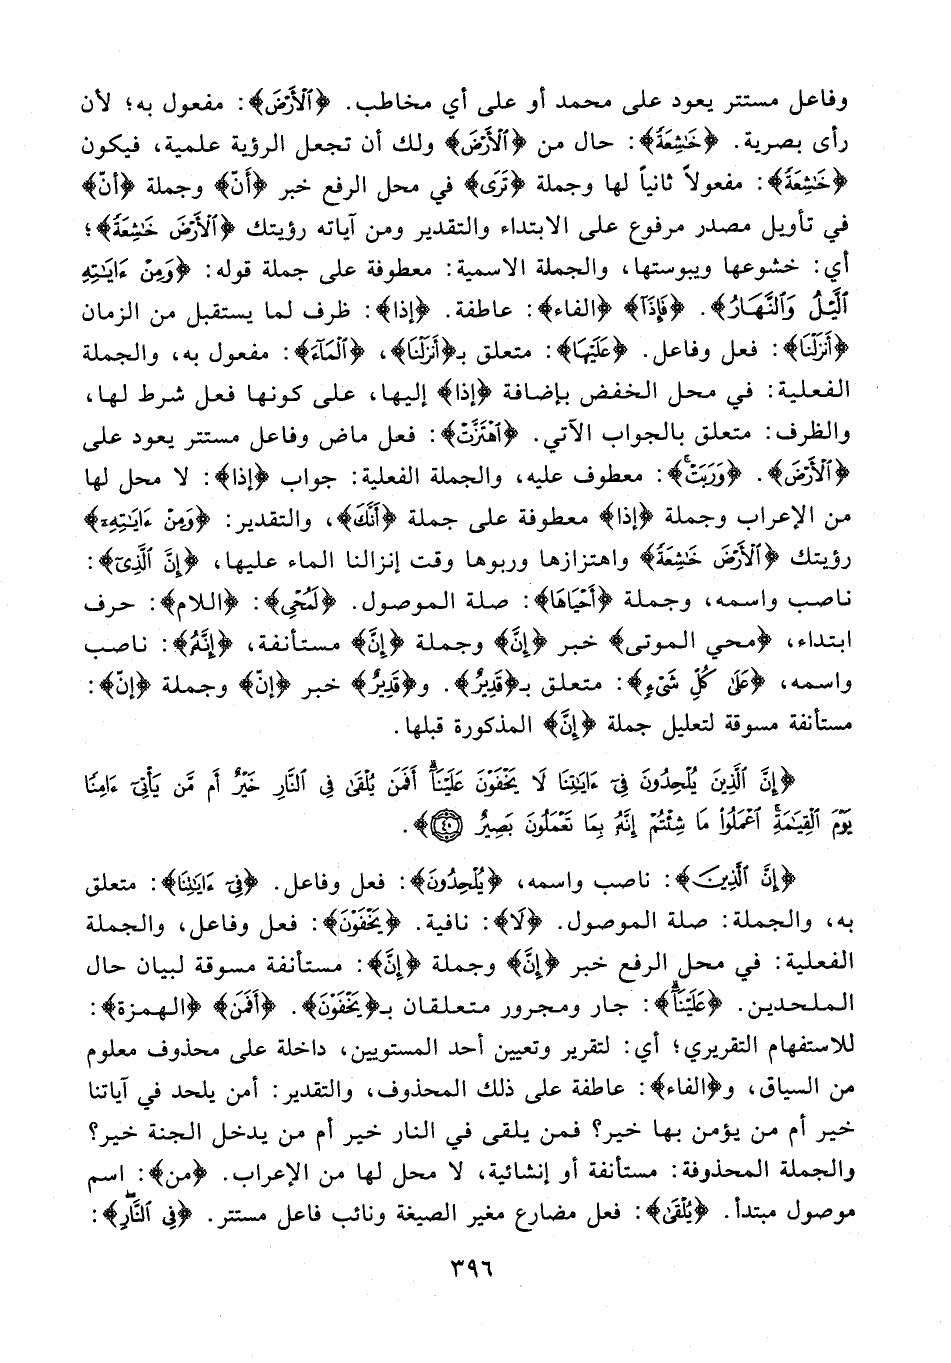 وفاعل مستتر يعود على محمد أو على أي مخاطب. ﴿ٱلْأَرْضَ﴾: مفعول به؛ لأن
رأى بصرية. ﴿خَٰشِعَةً﴾: حال من ﴿ٱلْأَرْضَ﴾ ولك أن تجعل الرؤية علمية، فيكون
﴿خَٰشِعَةً﴾: مفعولاً ثانياً لها وجملة ﴿تَرَى﴾ في محل الرفع خبر ﴿أَنّ﴾ وجملة ﴿أنّ﴾
في تأويل مصدر مرفوع على الابتداء والتقدير ومن آياته رؤيتك ﴿ٱلْأَرْضَ خَٰشِعَةً﴾؛
أي: خشوعها ويبوستها، والجملة الاسمية: معطوفة على جملة قوله: ﴿وَمِنْ ءَايَٰتِهِ
ٱلَّيْلُ وَٱلنَّهَارُ﴾. ﴿فَإِذَآ﴾ ﴿الفاء﴾: عاطفة. ﴿إذا﴾: ظرف لما يستقبل من الزمان
﴿أَنزَلْنَا﴾: فعل وفاعل. ﴿عَلَيْهَا﴾: متعلق بـ﴿أَنزَلْنَا﴾، ﴿ٱلْمَآءَ﴾: مفعول به، والجملة
الفعلية: في محل الخفض بإضافة ﴿إذا﴾ إليها، على كونها فعل شرط لها،
والظرف: متعلق بالجواب الآتي. ﴿ٱهْتَزَّتْ﴾: فعل ماض وفاعل مستتر يعود على
﴿ٱلْأَرْضَ﴾. ﴿وَرَبَتْ ۚ﴾: معطوف عليه، والجملة الفعلية: جواب ﴿إذا﴾: لا محل لها
من الإعراب وجملة ﴿إذا﴾ معطوفة على جملة ﴿أَنَّكَ﴾، والتقدير: ﴿وَمِنْ ءَايَٰتِهِۦ﴾
رؤيتك ﴿ٱلْأَرْضَ خَٰشِعَةً﴾ واهتزازها وربوها وقت إنزالنا الماء عليها، ﴿إِنَّ ٱلَّذِىٓ﴾:
ناصب واسمه، وجملة ﴿أَحْيَاهَا﴾: صلة الموصول. ﴿لَمُحْىِ﴾: ﴿اللام﴾: حرف
ابتداء، ﴿محي الموتى﴾ خبر ﴿إِنَّ﴾ وجملة ﴿إِنَّ﴾ مستأنفة، ﴿إِنَّهُ﴾: ناصب
واسمه، ﴿عَلَىٰ كُلِّ شَىْءٍ﴾: متعلق بـ﴿قَدِيرٌ﴾. و﴿قَدِيرٌ﴾ خبر ﴿إنّ﴾ وجملة ﴿إنّ﴾:
مستأنفة مسوقة لتعليل جملة ﴿إِنَّ﴾ المذكورة قبلها.
﴿إِنَّ ٱلَّذِينَ يُلْحِدُونَ فِىٓ ءَايَٰتِنَا لَا يَخْفَوْنَ عَلَيْنَآ ۗ أَفَمَن يُلْقَىٰ فِى ٱلنَّارِ خَيْرٌ أَم مَّن يَأْتِىٓ ءَامِنًا
يَوْمَ ٱلْقِيَٰمَةِ ۚ ٱعْمَلُوا۟ مَا شِئْتُمْ إِنَّهُۥ بِمَا تَعْمَلُونَ بَصِيرٌ ٤٠﴾.
﴿إِنَّ ٱلَّذِينَ﴾: ناصب واسمه، ﴿يُلْحِدُونَ﴾: فعل وفاعل. ﴿فِىٓ ءَايَٰتِنَا﴾: متعلق
به، والجملة: صلة الموصول. ﴿لَا﴾: نافية. ﴿يَخْفَوْنَ﴾: فعل وفاعل، والجملة
الفعلية: في محل الرفع خبر ﴿إِنَّ﴾ وجملة ﴿إِنَّ﴾: مستأنفة مسوقة لبيان حال
الملحدين. ﴿عَلَيْنَآ ۗ﴾: جار ومجرور متعلقان بـ﴿يَخْفَوْنَ﴾. ﴿أَفَمَن﴾ ﴿الهمزة﴾:
للاستفهام التقريري؛ أي: لتقرير وتعيين أحد المستويين، داخلة على محذوف معلوم
من السياق، و﴿الفاء﴾: عاطفة على ذلك المحذوف، والتقدير: أمن يلحد في آياتنا
خير أم من يؤمن بها خير؟ فمن يلقى في النار خير أم من يدخل الجنة خير؟
والجملة المحذوفة: مستأنفة أو إنشائية، لا محل لها من الإعراب. ﴿من﴾: اسم
موصول مبتدأ. ﴿يُلْقَىٰ﴾: فعل مضارع مغير الصيغة ونائب فاعل مستتر. ﴿فِى ٱلنَّارِ ۖ﴾:
٣٩٦